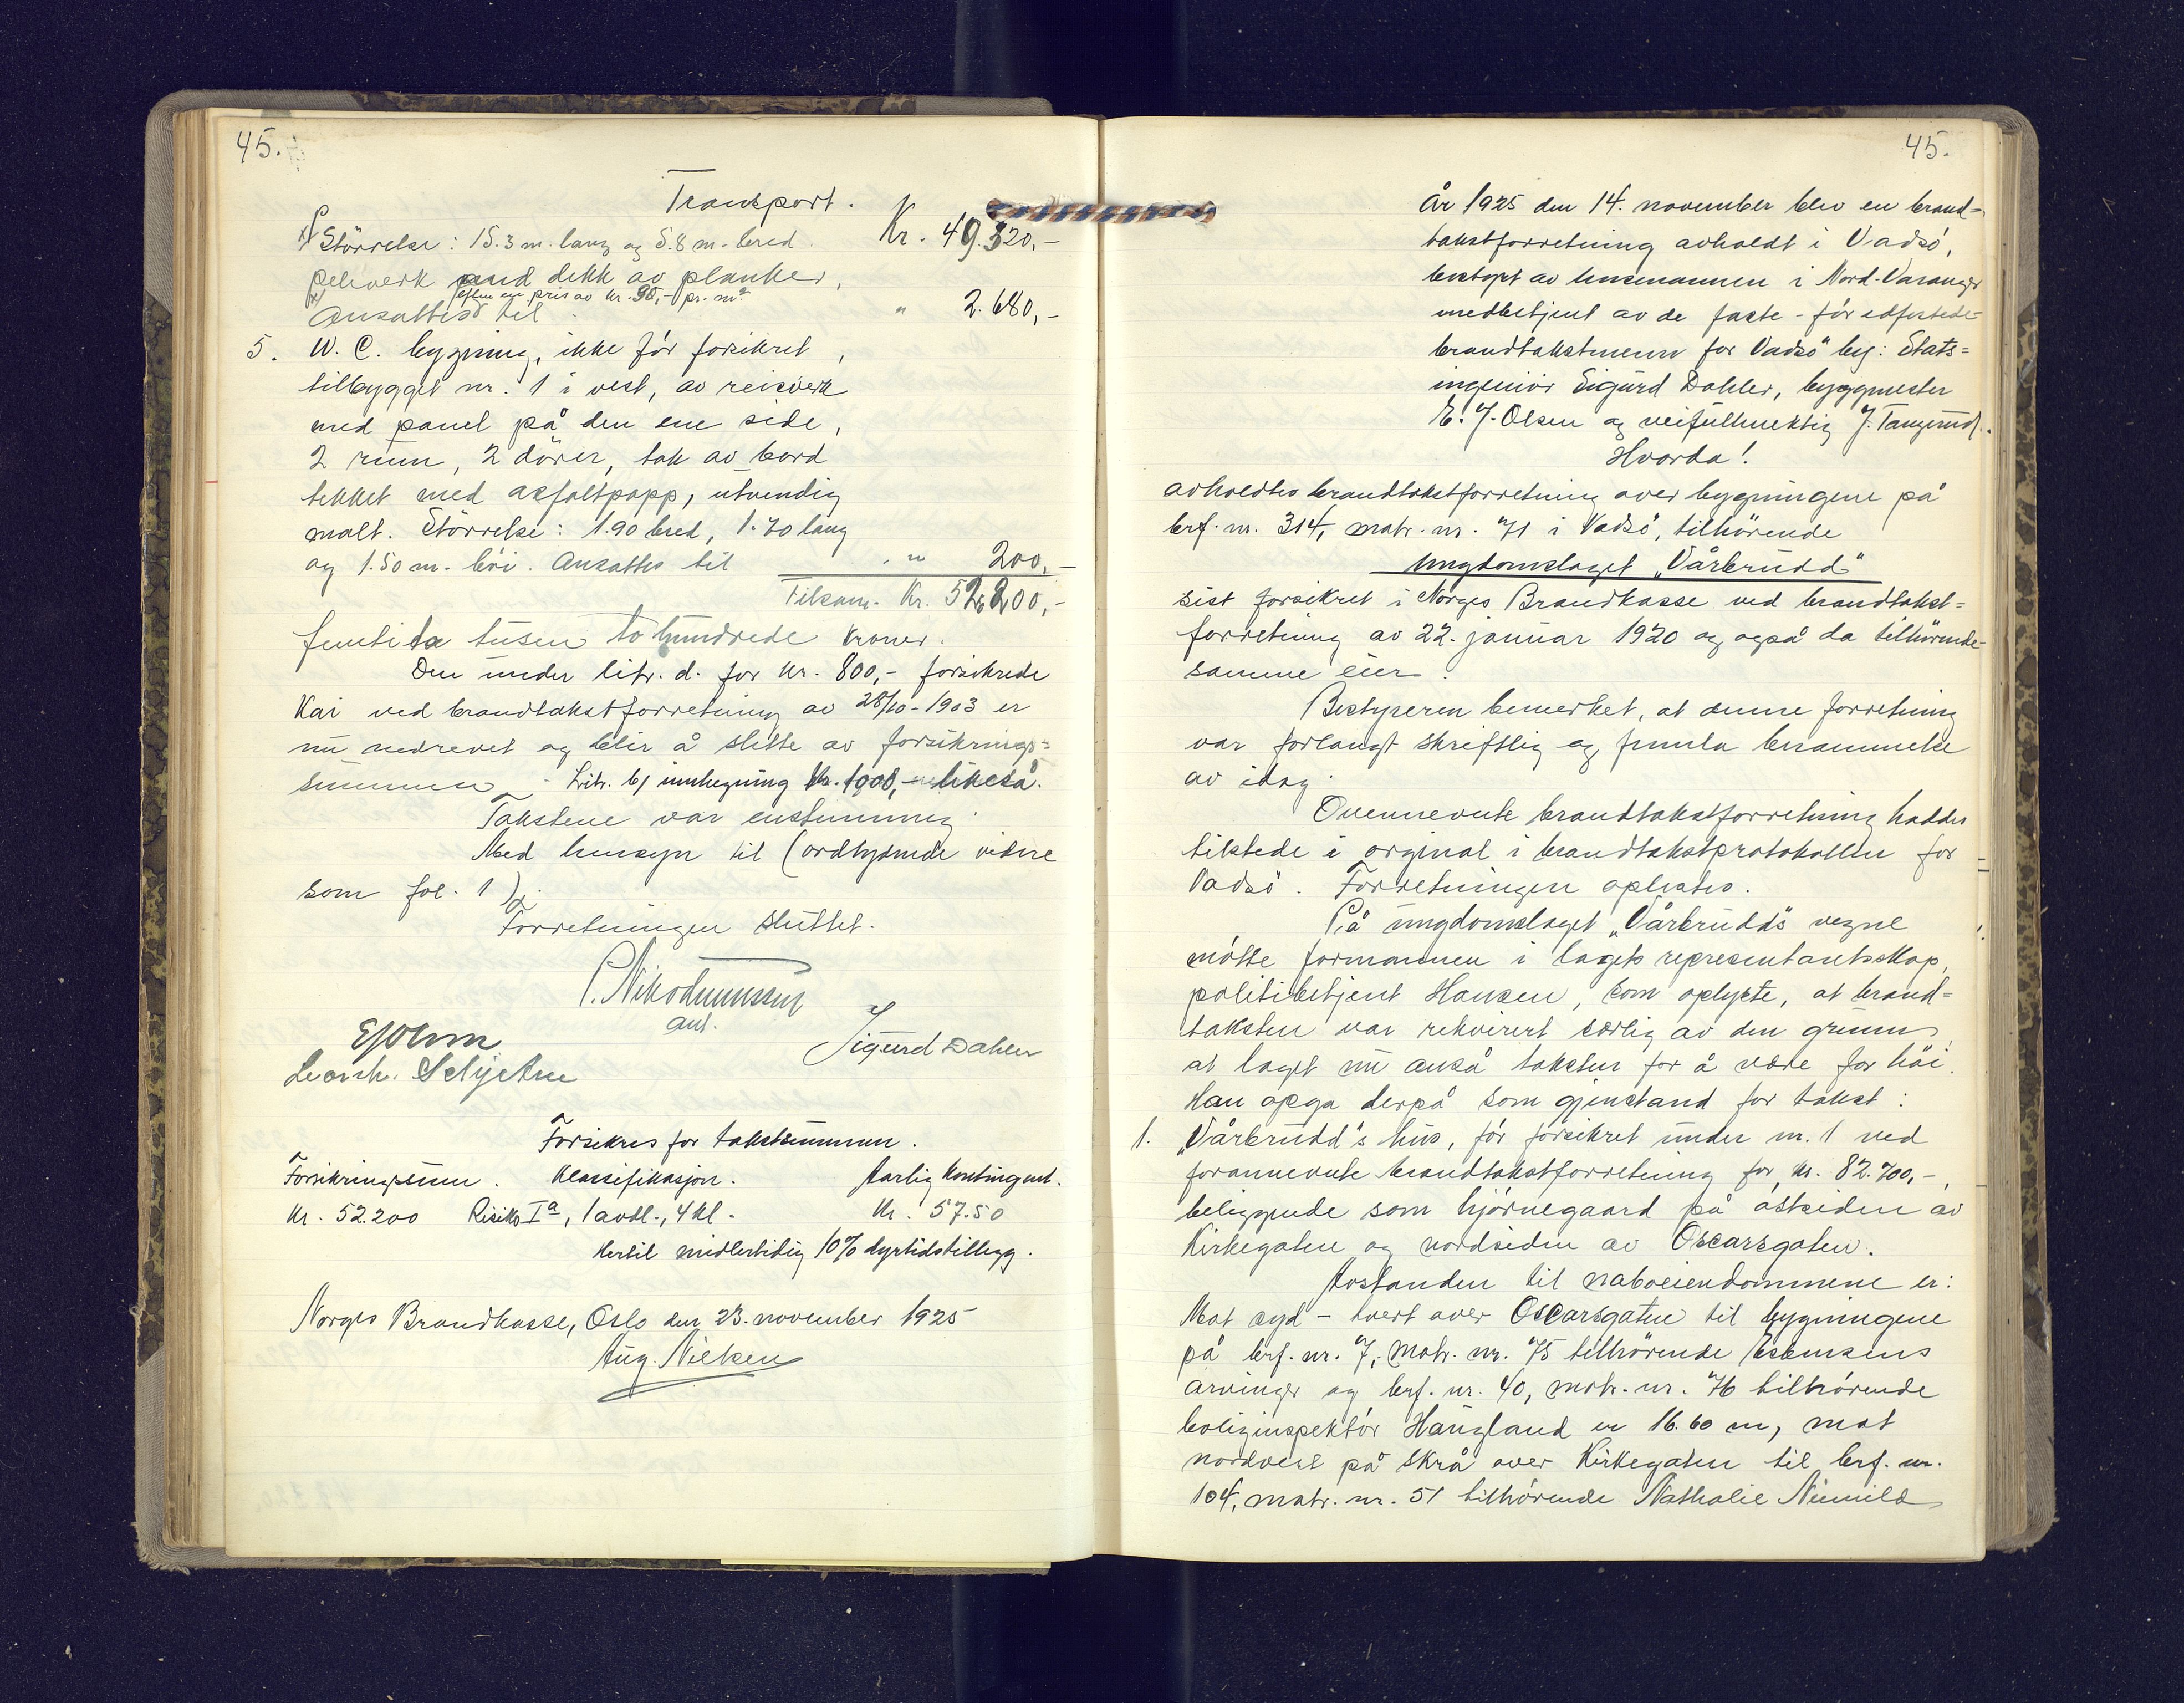 45.
Transport.
Størrelse: 15.3 m. lang og 5.8 m. bred. Kr. 49.320,-
pelverk med dekk av planker,
efter en pris av kr. 90,- pr. m²
Ansattes til " 2.680,-
5. W. C. bygning, ikke før forsikret,
tilbygget nr. 1 i vest, av reisverk
med panel på den ene side,
2 rum, 2 dører, tak av bord
tekket med asfaltpapp, utvendig
malt. Størrelse: 1.90 bred, 1.70 lang
og 1.50 m. høi. Ansattes til " 200,-
Tilsam. Kr. 52.200,-
femtito tusen to hundrede kroner.
Den under litr. d. for kr. 800,- forsikrede
Kai ved brandtakstforretning av 28/10-1903 er
nu nedrevet og blir å slette av forsikrings=
summen - Litr. b) innhegning kr. 1000,- likeså.
Takstene var enstemmig.
Med hensyn til (ordlydende videre
som fol. 1).
Forretningen sluttet.
P. Nikodemussen
aut.
E J Olsen
Sigurd Dahler
Leonh. Schjetne
Forsikres for takstsummen.
Forsikringssum. Klassifikasjon. Aarlig kontingent.
Kr. 52.200 Risiko Iª, 1 avdl., 4 kl. Kr. 57.50
Hertil midlertidig 10% dyrtidstillegg.
Norges Brandkasse, Oslo den 23. november 1925
Aug. Nielsen
45.
År 1925 den 14. november blev en brand-
takstforretning avholdt i Vadsø,
bestyrt av lensmannen i Nord-Varanger
medbetjent av de faste - før edfestede
brandtakstmenn for Vadsø by: Stats=
ingeniør Sigurd Dahler, byggmester
E. J. Olsen og veifullmektig J. Tangerud.
Hvorda!
avholdtes brandtakstforretning over bygningene på
brf. nr. 314, matr. nr. 71 i Vadsø, tilhørende
Ungdomslaget „Vårbrudd"
sist forsikret i Norges Brandkasse ved brandtakst=
forretning av 22. januar 1920 og også da tilhørende
samme eier.
Bestyreren bemerket, at denne forretning
var forlangt skriftlig og fremla berammelse
av idag.
Ovennevnte brandtakstforretning haddes
tilstede i orginal i brandtakstprotokollen for
Vadsø. Forretningen oplestes.
På ungdomslaget „Vårbrudd's vegne
møtte formannen i lagets representantsskap,
politibetjent Hansen, som oplyste, at brand=
taksten var rekvirert særlig av den grunn,
at laget nu anså taksten for å være for høi.
Han opga derpå som gjenstand for takst:
1. „Vårbrudd"s hus, før forsikret under nr. 1 ved
forannevnte brandtakstforretning for kr. 82.700,-,
beliggende som hjørnegaard på østsiden av
Kirkegaten og nordsiden av Oscarsgaten.
Avstanden til naboeiendommene er:
Mot syd - tvert over Oscarsgaten til bygningene
på brf. nr. 7, matr. nr. 75 tilhørende Esbensens
arvinger og brf. nr. 40, matr. nr. 76 tilhørende
boliginspektør Haugland er 16.60 m, mot
nordvest på skrå over Kirkegaten til brf. nr.
104, matr. nr. 51 tilhørende Nathalie